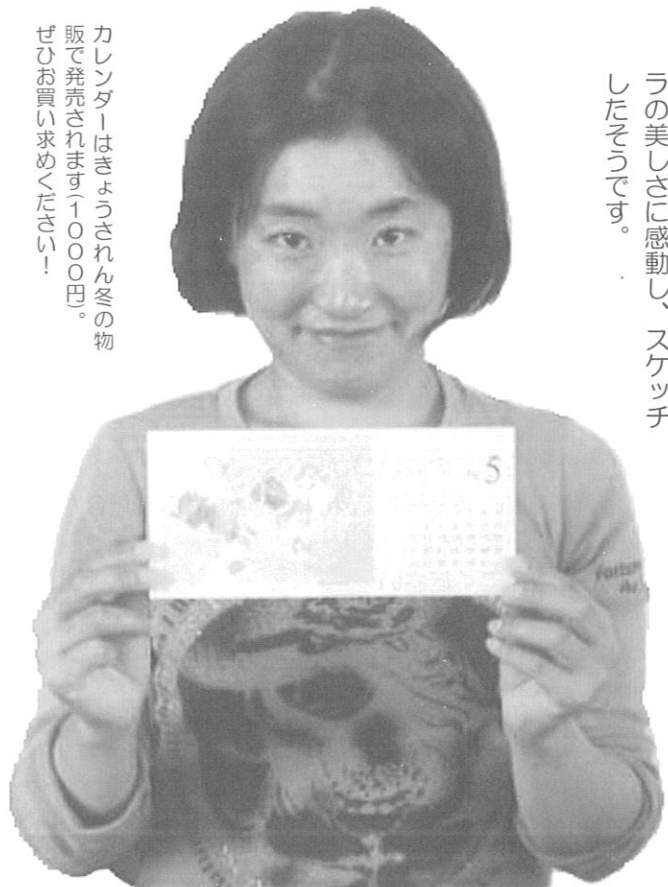 ラの美しさに感動し、スケッチ
したそうです。
カレンダーはきょうされん冬の物
販で発売されます(1000円)。
ぜひお買い求めください!
5